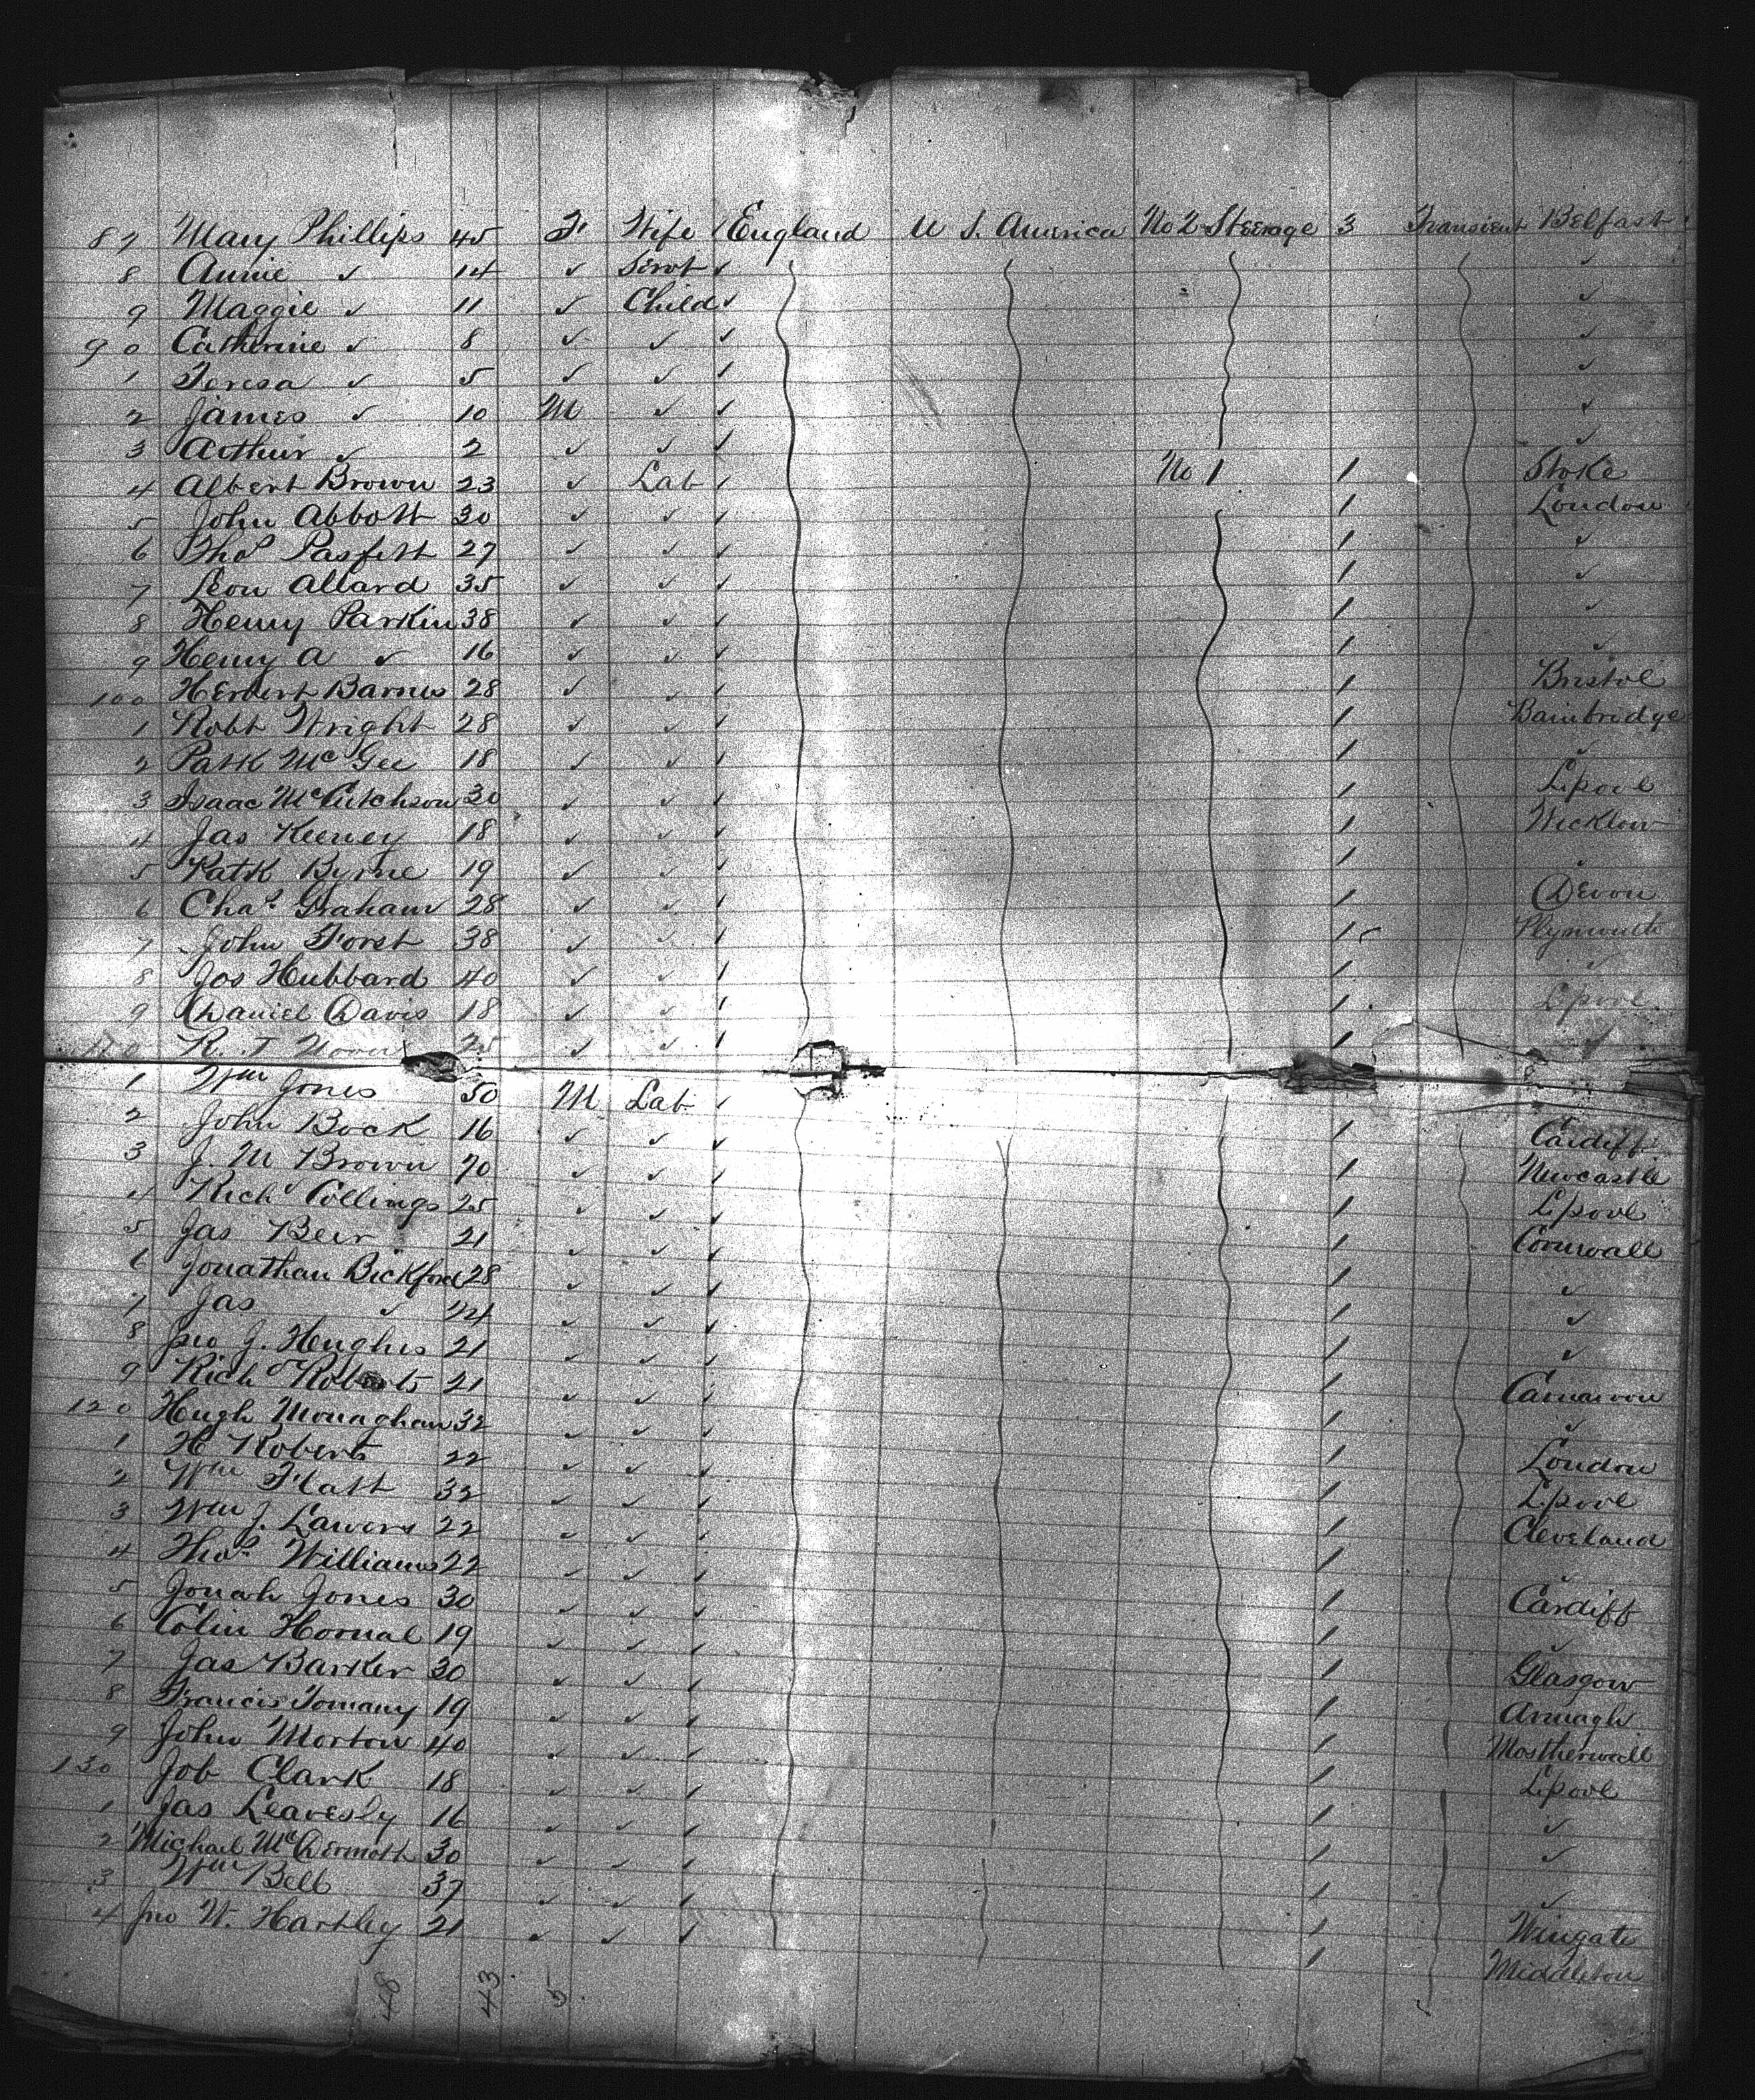 87 Mary Phillips 45 F Wife / England U S. America No 2 Steerage 3 Transient Belfast
8 Annie ✓ 14 ✓ Servt ✓ ✓
9 Maggie ✓ 11 ✓ Child ✓ ✓
90 Catherine ✓ 8 ✓ ✓ ✓ ✓
1 Teresa ✓ 5 ✓ ✓ / ✓
2 James ✓ 10 M ✓ ✓ ✓
3 Arthur ✓ 2 ✓ ✓ / ✓
4 Albert Brown 23 ✓ Lab / No 1 / Stoke
5 John Abbott 30 ✓ ✓ / / London
6 Thos 27 ✓ ✓ / / ✓
7 Leon Allard 35 ✓ ✓ / / ✓
8 Henry Parkin 38 ✓ ✓ / / ✓
9 Henry A ✓ 16 ✓ ✓ / / ✓
100 Herbert Barnes 28 ✓ ✓ / / Bristol
1 Robt Wright 28 ✓ ✓ / / Bainbridge
2 Patk McGee 18 ✓ ✓ / / ✓
3 Isaac McCutchson 30 ✓ ✓ / / Lpool
4 Jas Keeney 18 ✓ ✓ / / Wicklow
5 Patk Byrne 19 ✓ ✓ / / ✓
6 Chas Graham 28 ✓ ✓ / / Devon
7 John Forst 38 ✓ ✓ / / Plymouth
8 Jos Hubbard 40 ✓ ✓ / / ✓
9 Daniel Davis 18 ✓ ✓ / / Lpool
R. T 25 ✓ ✓ / / ✓
1 Wm Jones 50 M Lab /
2 John Bock 16 ✓ ✓ ✓ / Cardiff
3 J. M Brown 70 ✓ ✓ / / Newcastle
4 Richd Collings 25 ✓ ✓ / / Lpool
5 Jas Beer 21 ✓ ✓ / / Cornwall
6 Jonathan Bickford 28 ✓ ✓ / / ✓
7 Jas ✓ 24 ✓ ✓ / / ✓
8 Jno J. Hughes 21 ✓ ✓ / / ✓
9 Richd Roberts 21 ✓ ✓ / / Carnarvon
120 Hugh Monaghan 32 ✓ ✓ / / ✓
1 H Roberts 22 ✓ ✓ / / London
2 Wm Flatt 32 ✓ ✓ / / Lpool
3 Wm J. Lawers 22 ✓ ✓ / / Cleveland
4 Thos Williams 22 ✓ ✓ / / ✓
5 Jonah Jones 30 ✓ ✓ / / Cardiff
6 Colin Hornal 19 ✓ ✓ / / ✓
7 Jas Barker 30 ✓ ✓ / / Glasgow
8 Francis Tomany 19 ✓ ✓ / / Armagh
9 John Morton 40 ✓ ✓ / / Mostherwell
130 Job Clark 18 ✓ ✓ / / Lpool
1 Jas Leavesly 16 ✓ ✓ / / ✓
2 Michael McDermott 30 ✓ ✓ / / ✓
3 Wm Bell 37 ✓ ✓ / / ✓
4 Jno W. Hartley 21 ✓ ✓ / / Wingate
/ Middleton
48 43 5